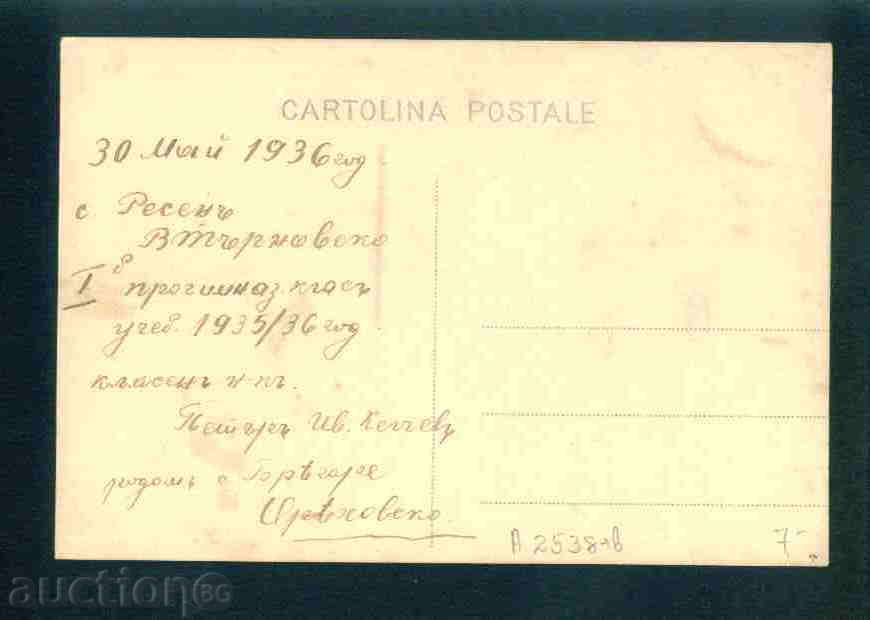 CARTOLINA POSTALE
30 Май 1936 год
с Ресенъ
В Търновско
I б прогимназ. класъ
учеб. 1935/36 год
класенъ н-къ.
Петъръ Ив.
родомъ с
Орѣховско
А 2538-в
7-
auction BG